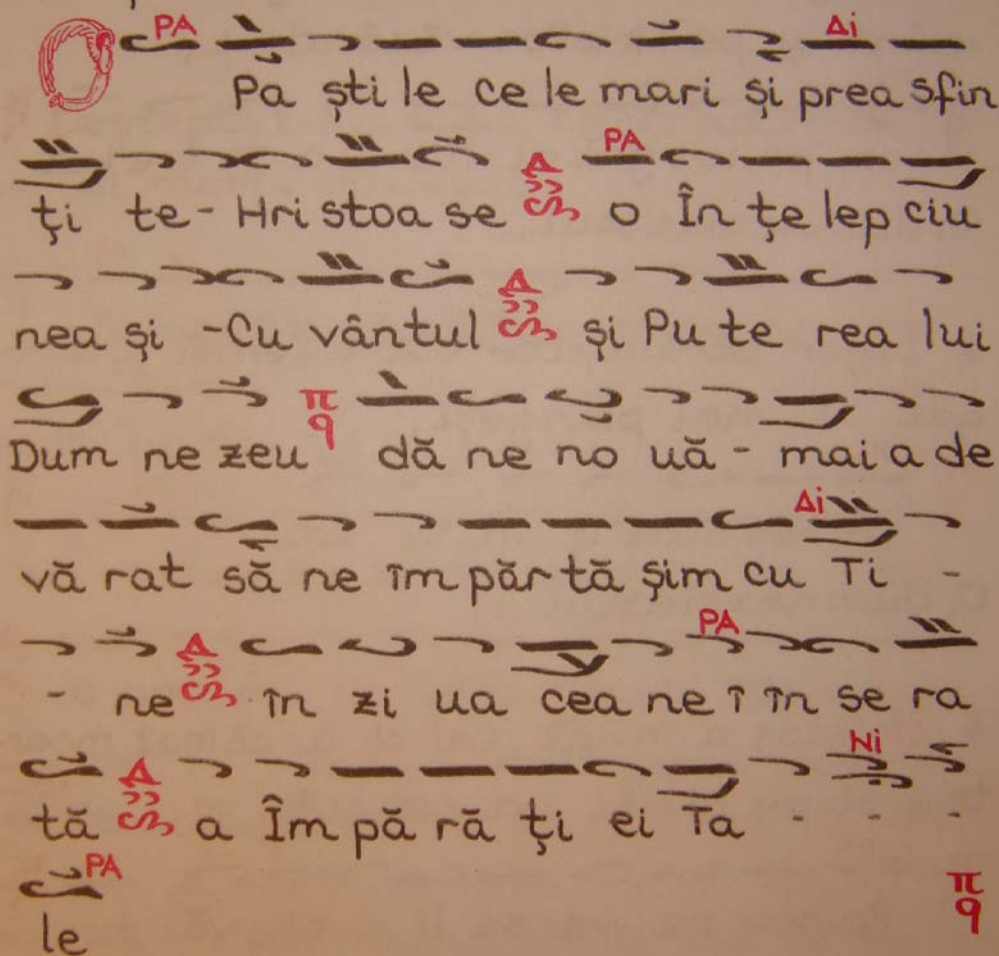 PA Δi
O Pa ști le ce le mari și prea sfin
PA
ți te - Hri stoa se o În țe lep ciu
nea și - Cu vântul și Pu te rea lui
π q
Dum ne zeu dă ne no uă - mai a de
Δi
vă rat să ne îm păr tă șim cu Ti -
PA
- ne în zi ua cea ne î în se ra
Ni
tă a Îm pă ră ți ei Ta - - -
PA π q
le